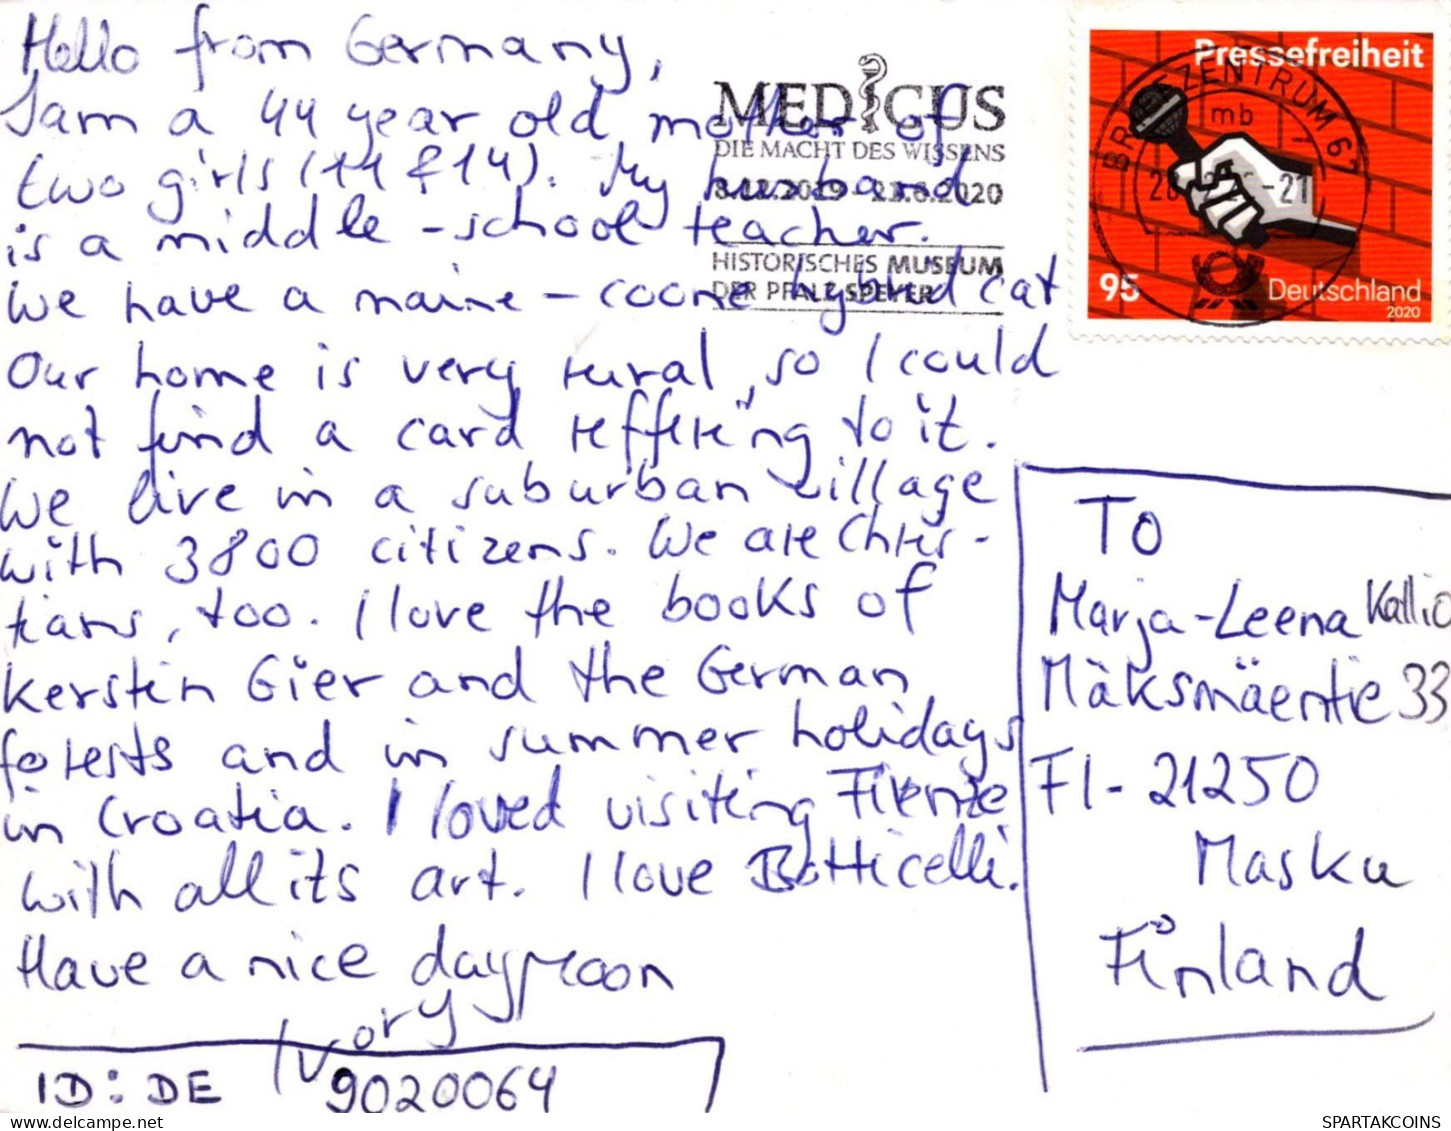 Hello from Germany,
I am a 44 year old mother of
two girls (11 & 14). My husband
is a middle-school teacher.
We have a maine-coone hybrid cat
Our home is very rural, so I could
not find a card reffering to it.
We live in a suburban village
with 3800 citizens. We are Chris-
tians, too. I love the books of
Kerstin Gier and the German
forests and in summer holidays
in Croatia. I loved visiting Firenze
with all its art. I love Botticelli.
Have a nice day
Ivory
ID: DE 9020064
MEDICUS
DIE MACHT DES WISSENS
8.12.2019 - 21.6.2020
HISTORISCHES MUSEUM
DER PFALZ SPEYER
Pressefreiheit
BRIEFZENTRUM 67
mb
-21
95
Deutschland
2020
To
Marja-Leena Kallio
Mäksmäentie 33
FI-21250
Masku
Finland
SPARTAKCOINS